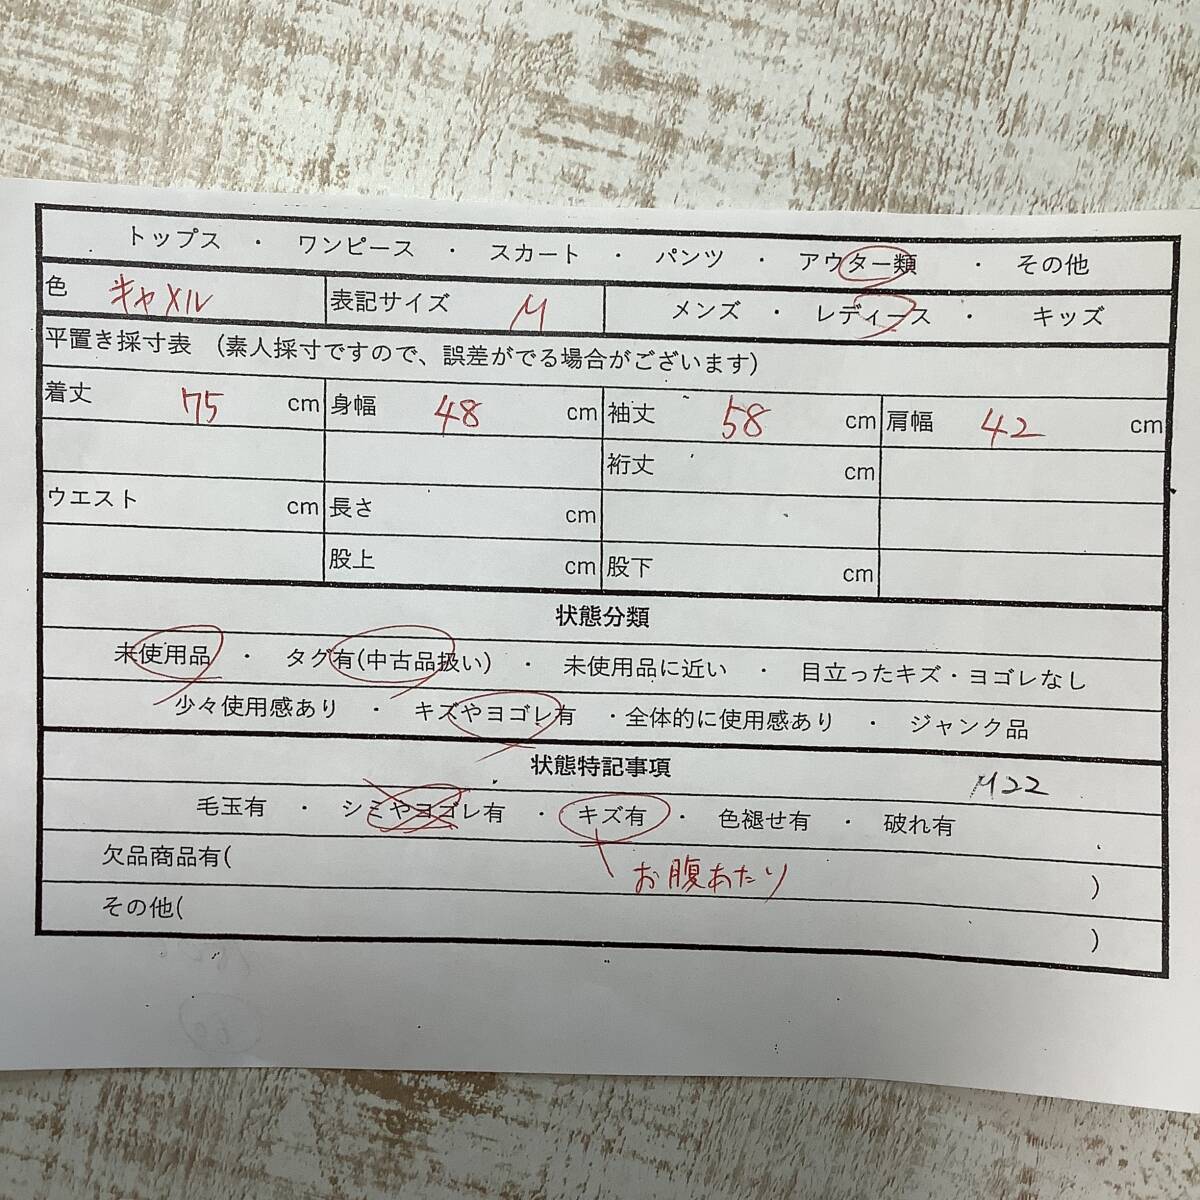 トップス ・ ワンピース ・ スカート ・ パンツ ・ アウター類 ・ その他
色 キャメル 表記サイズ M メンズ ・ レディース ・ キッズ
平置き採寸表 （素人採寸ですので、誤差がでる場合がございます）
着丈 75 cm 身幅 48 cm 袖丈 58 cm 肩幅 42 cm
裄丈 cm
ウエスト cm 長さ cm
股上 cm 股下 cm
状態分類
未使用品 ・ タグ有(中古品扱い) ・ 未使用品に近い ・ 目立ったキズ・ヨゴレなし
少々使用感あり ・ キズやヨゴレ有 ・全体的に使用感あり ・ ジャンク品
状態特記事項
M22
毛玉有 ・ シミやヨゴレ有 ・ キズ有 ・ 色褪せ有 ・ 破れ有
欠品商品有( )
お腹あたり
その他( )